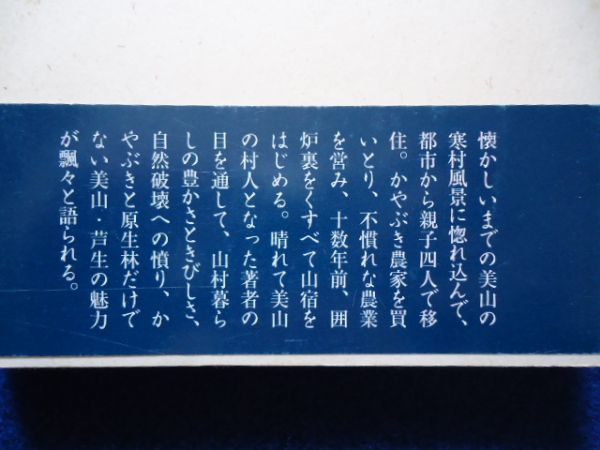 懐かしいまでの美山の
寒村風景に惚れ込んで、
都市から親子四人で移
住。かやぶき農家を買
いとり、不慣れな農業
を営み、十数年前、囲
炉裏をくすべて山宿を
はじめる。晴れて美山
の村人となった著者の
目を通して、山村暮ら
しの豊かさときびしさ、
自然破壊への憤り、か
やぶきと原生林だけで
ない美山・芦生の魅力
が飄々と語られる。